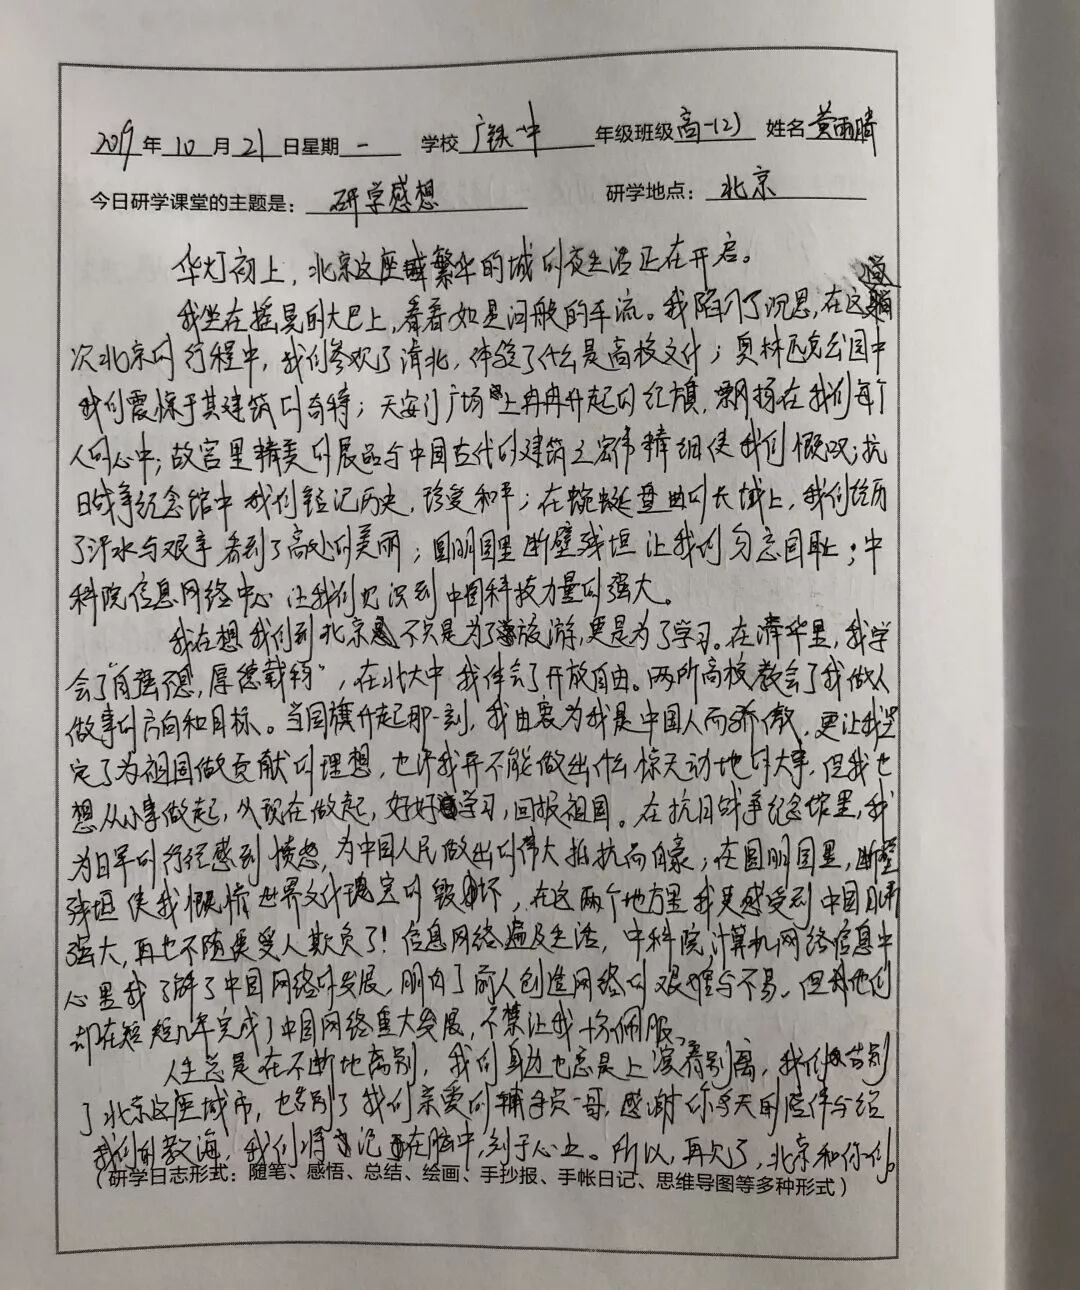 2019年10月21日星期一 学校广铁一中 年级班级高一(2) 姓名黄雨晴
今日研学课堂的主题是：研学感想 研学地点：北京
华灯初上，北京这座繁华的城的夜生活正在开启。
我坐在摇晃的大巴上，看着如是河般的车流。我陷入了沉思，在这趟
次北京的行程中，我们参观了清北，体验了什么是高校文化；奥林匹克公园中
我们震惊于其建筑的奇特；天安门广场上冉冉升起的红旗，飘扬在我们每个
人的心中；故宫里精美的展品与中国古代的建筑之宏伟精细使我们慨叹；抗
日战争纪念馆中我们铭记历史，珍爱和平；在蜿蜒盘曲的长城上，我们经历
了汗水与艰辛看到了高处的美丽；圆明园里断壁残垣让我们勿忘国耻；中
科院信息网络中心让我们见识到中国科技力量的强大。
我在想我们到北京不只是为了旅游，更是为了学习。在清华里，我学
会了"自强不息，厚德载物"，在北大中我体会了开放自由。两所高校教会了我做人
做事的方向和目标。当国旗升起那一刻，我由衷为我是中国人而骄傲，更让我坚
定了为祖国做贡献的理想，也许我并不能做出什么惊天动地的大事，但我也
想从小事做起，从现在做起，好好学习，回报祖国。在抗日战争纪念馆里，我
为日军的行径感到愤怒，为中国人民做出的伟大抵抗而自豪；在圆明园里，断壁
残垣使我慨惜世界文化瑰宝的毁坏，在这两个地方里我更感受到中国日渐
强大，再也不随便受人欺负了！信息网络遍及生活，中科院计算机网络信息中
心里我了解了中国网络的发展，明白了前人创造网络的艰难与不易，但他们
却在短短几年完成了中国网络重大发展，不禁让我十分佩服。
人生总是在不断地离别，我们身边也总是上演着别离，我们告别
了北京这座城市，也告别了我们亲爱的辅导员一哥，感谢你多天的陪伴与给
我们的教诲，我们将记在脑中，刻于心上。所以，再见了，北京和你们。
（研学日志形式：随笔、感悟、总结、绘画、手抄报、手帐日记、思维导图等多种形式）